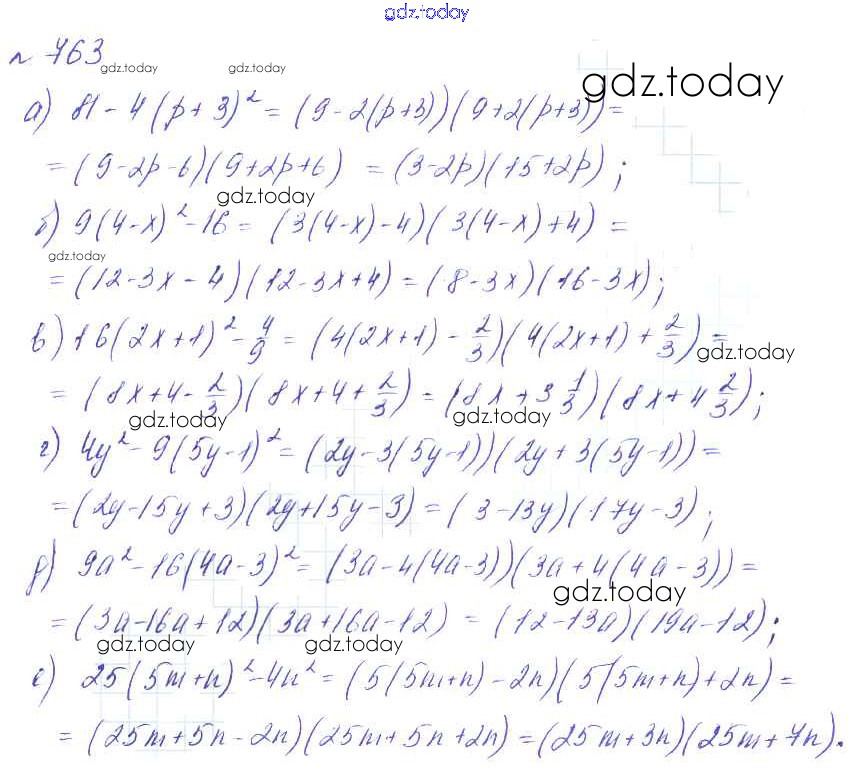 gdz.today
№ 763
gdz.today gdz.today gdz.today
а) 81 - 4(p + 3)² = (9 - 2(p+3))(9 + 2(p+3)) =
= (9 - 2p - 6)(9 + 2p + 6) = (3 - 2p)(15 + 2p);
gdz.today
б) 9(4 - x)² - 16 = (3(4 - x) - 4)(3(4 - x) + 4) =
gdz.today
= (12 - 3x - 4)(12 - 3x + 4) = (8 - 3x)(16 - 3x);
в) 16(2x + 1)² - 4/9 = (4(2x + 1) - 2/3)(4(2x + 1) + 2/3) =
gdz.today
= (8x + 4 - 2/3)(8x + 4 + 2/3) = (8x + 3 1/3)(8x + 4 2/3);
gdz.today gdz.today
г) 4y² - 9(5y - 1)² = (2y - 3(5y - 1))(2y + 3(5y - 1)) =
= (2y - 15y + 3)(2y + 15y - 3) = (3 - 13y)(17y - 3);
д) 9a² - 16(4a - 3)² = (3a - 4(4a - 3))(3a + 4(4a - 3)) =
gdz.today
= (3a - 16a + 12)(3a + 16a - 12) = (12 - 13a)(19a - 12);
gdz.today gdz.today
е) 25(5m + n)² - 4n² = (5(5m + n) - 2n)(5(5m + n) + 2n) =
= (25m + 5n - 2n)(25m + 5n + 2n) = (25m + 3n)(25m + 7n).